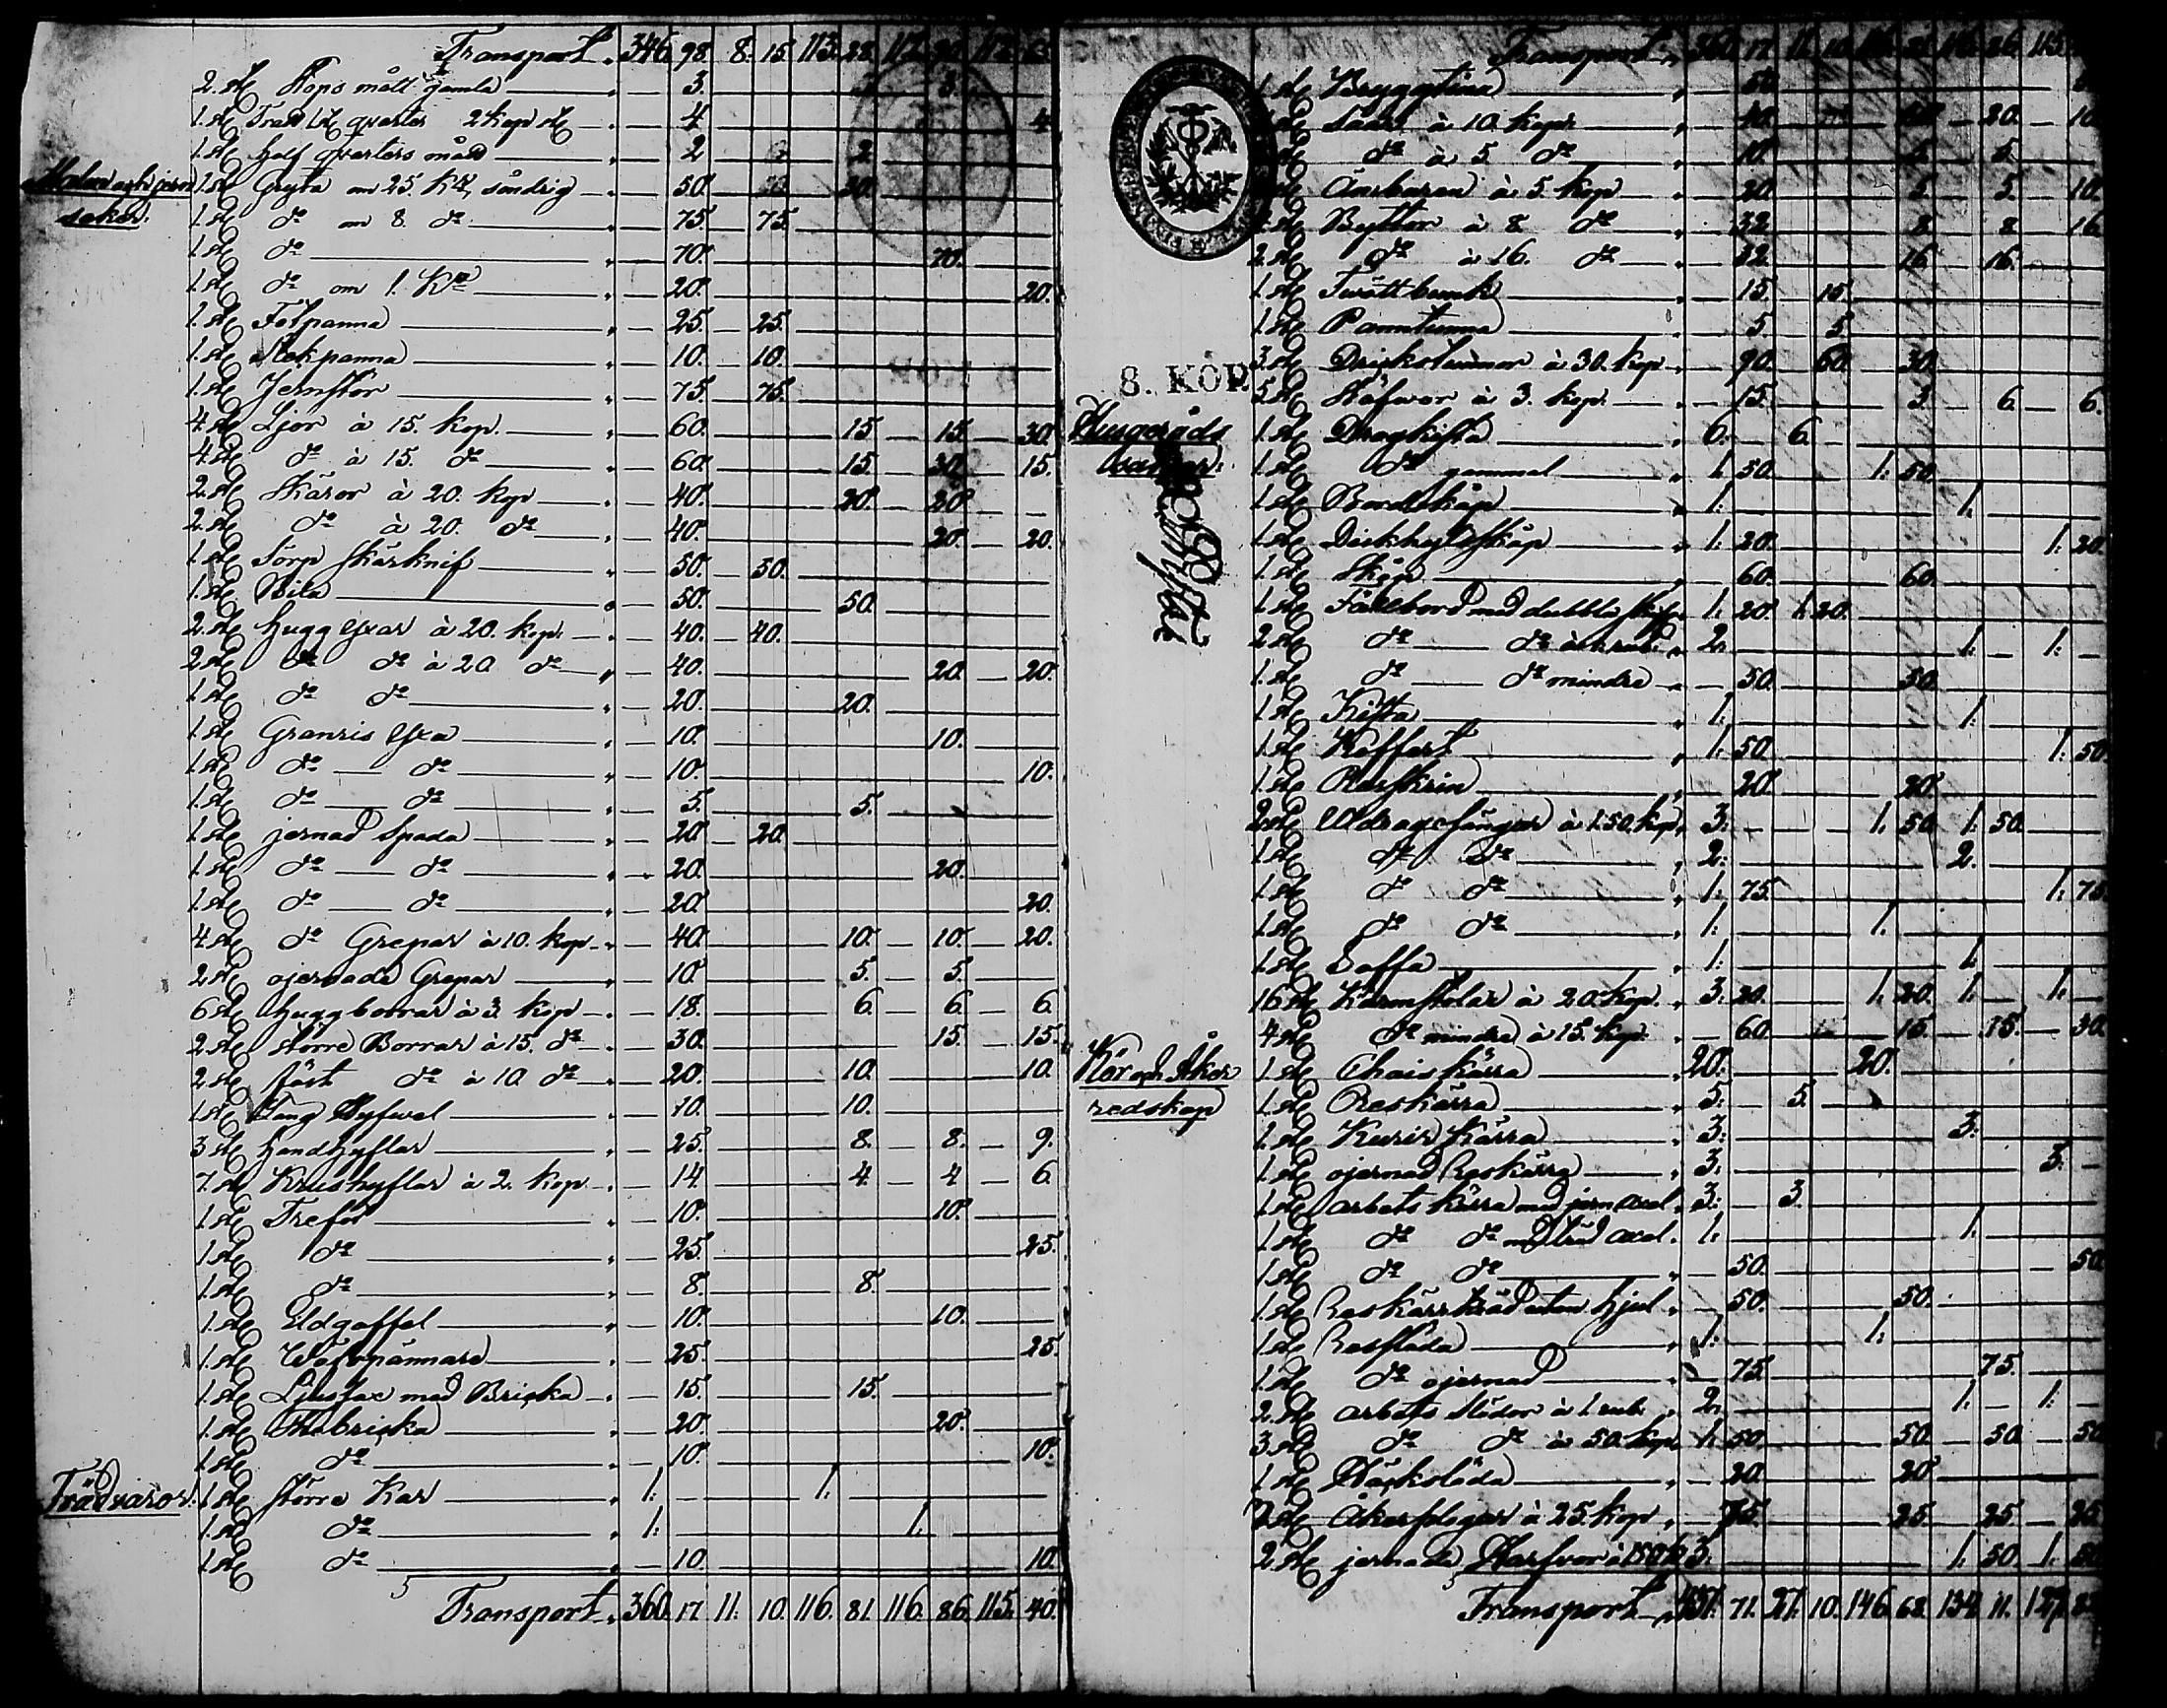 Transport 346. 98. 8. 15. 113. 28. 112. 90. 112. 65.
2. st Stops mått gamla — 3. 3.
1. st Träd 1/2 qvarter 2 kop st — 4 4.
1. st half qvarters mått — 2 2
Malm och jern saker.
1. st Gryta om 25. Kr söndrig — 50. 20. 30.
1. st do om 8. do — 75. 75.
1. st do — 70. 70.
1. st do om 1. Kna — 20. 20.
1. st Fotpanna — 25. 25.
1. st Stekpanna — 10. 10.
1. st Jernstör — 75. 75.
4. st Ljor à 15. kop. — 60. 15. 15. 30.
4. st do à 15. do — 60. 15. 30. 15.
2. st Skäror à 20. kop — 40. 20. 20.
2. st do à 20. do — 40. 20. 20.
1. st Sörp skärknif — 50. 50.
1. st Bila — 50. 50.
2. st Hugg yxar à 20. kop. — 40. 40.
2. st do do à 20 do — 40. 20. 20.
1. st do do — 20. 20.
1. st Granris yxa — 10. 10.
1. st do — do — 10. 10.
1. st do — do — 5. 5.
1. st jernad Spada — 20 20.
1. st do — do — 20. 20.
1. st do — do — 20. 20.
4. st do Grepar à 10. kop — 40. 10. 10. 20.
2. st ojernade Grepar — 10. 5. 5.
6 st Huggborrar à 3. kop — 18. 6. 6. 6.
2. st större Borrar à 15. do — 30. 15. 15.
2. st fäst do à 10 do — 20. 10. 10.
1. st Lang Hyfvel — 10. 10.
3 st Handhyflar — 25. 8. 8. 9.
7. st Krushyflar à 2. kop — 14 4. 4 6.
1. st Trefot — 10. 10.
1. st do — 25. 25.
1. st do — 8. 8.
1. st Eldgaffel — 10. 10.
1. st Wäfspännare — 25. 25.
1. st Ljussax med Bricka — 15. 15.
1. st Thebricka — 20. 20.
1. st do — 10. 10.
Trädvaror.
1. st större Kar — 1. 1.
1. st do — 1. 1.
1. st do — 10. 10.
Transport 360. 17 11. 10. 116. 81. 116. 86. 115. 40.
Transport 360. 17. 11. 10. 116. 81. 116. 86. 115.
1. st Bryggtina — 50
st Såar à 10. kopr — 40. 10. 20. 10
st do à 5 do — 10. 5. 5.
st Ämbaren à 5. kop — 20. 5. 5. 10.
st Byttor à 8 do — 32. 8. 8. 16
2. st do à 16. do — 32. 16. 16.
1. st Twättbunk — 15. 15.
1. st Panntunna — 5 5.
3. st Drickstunnor à 30. kop — 90. 60. 30.
8. KOP.
5. st Stäfvor à 3. kop. — 15. 3. 6. 6.
Husgeråds saker:
1. st Dragkista — 6. 6.
1. st do gammal — 1. 50. 1. 50.
1. st Bordskåp — 1. 1.
1. st Däckhyllskåp — 1. 20. 1. 20.
1. st Skåp — 60. 60.
1. st Fällbord med dubbla — 1. 20. 1. 20.
2. st do — do à 1 rub. 2. 1. 1.
1. st do — do mindre — 50. 50.
1. st Kista — 1. 1.
1. st Koffert — 1. 50. 1. 50
1. st Resskrin — 20. 20.
2. st Utdragssängar à 1.50. kop. 3. 1. 50. 1. 50.
1. st do do — 2. 2.
1. st do do — 1. 75. 1. 75.
1. st do do — 1. 1.
1. st Soffa — 1. 1
16 st Karmstolar à 20. kop. 3. 20. 1. 20. 1. 1.
4 st do mindre à 15. kop. — 60. 15. 15. 30.
Kör och Åker redskap
1. st Chaiskärra — 20. 20.
1. st Reskärra — 5. 5.
1. st Kurir Kärra — 3. 3.
1. st ojernad Reskärra — 3. 3.
1. st arbets kärra med jern axel. 3. 3.
1. st do do med träd axel. 1. 1.
1. st do do — 50. 50
1. st Reskärrträd utan hjul — 50. 50.
1. st Resslåda — 1. 1.
1. st do ojernad — 75. 75.
2. st arbets Slädor à 1. rub. 2. 1. 1.
3. st do do à 50. kop. 1. 50. 50. 50. 50
1. st Släckslåda — 20 20
3. st Åkerplogar à 25. kop. 75. 25. 25 25.
2. st jernade Harfvor à 1.50 k. 3. 1. 50. 1. 50
Transport 437. 71. 27. 10. 146. 68. 134. 11. 127. 82